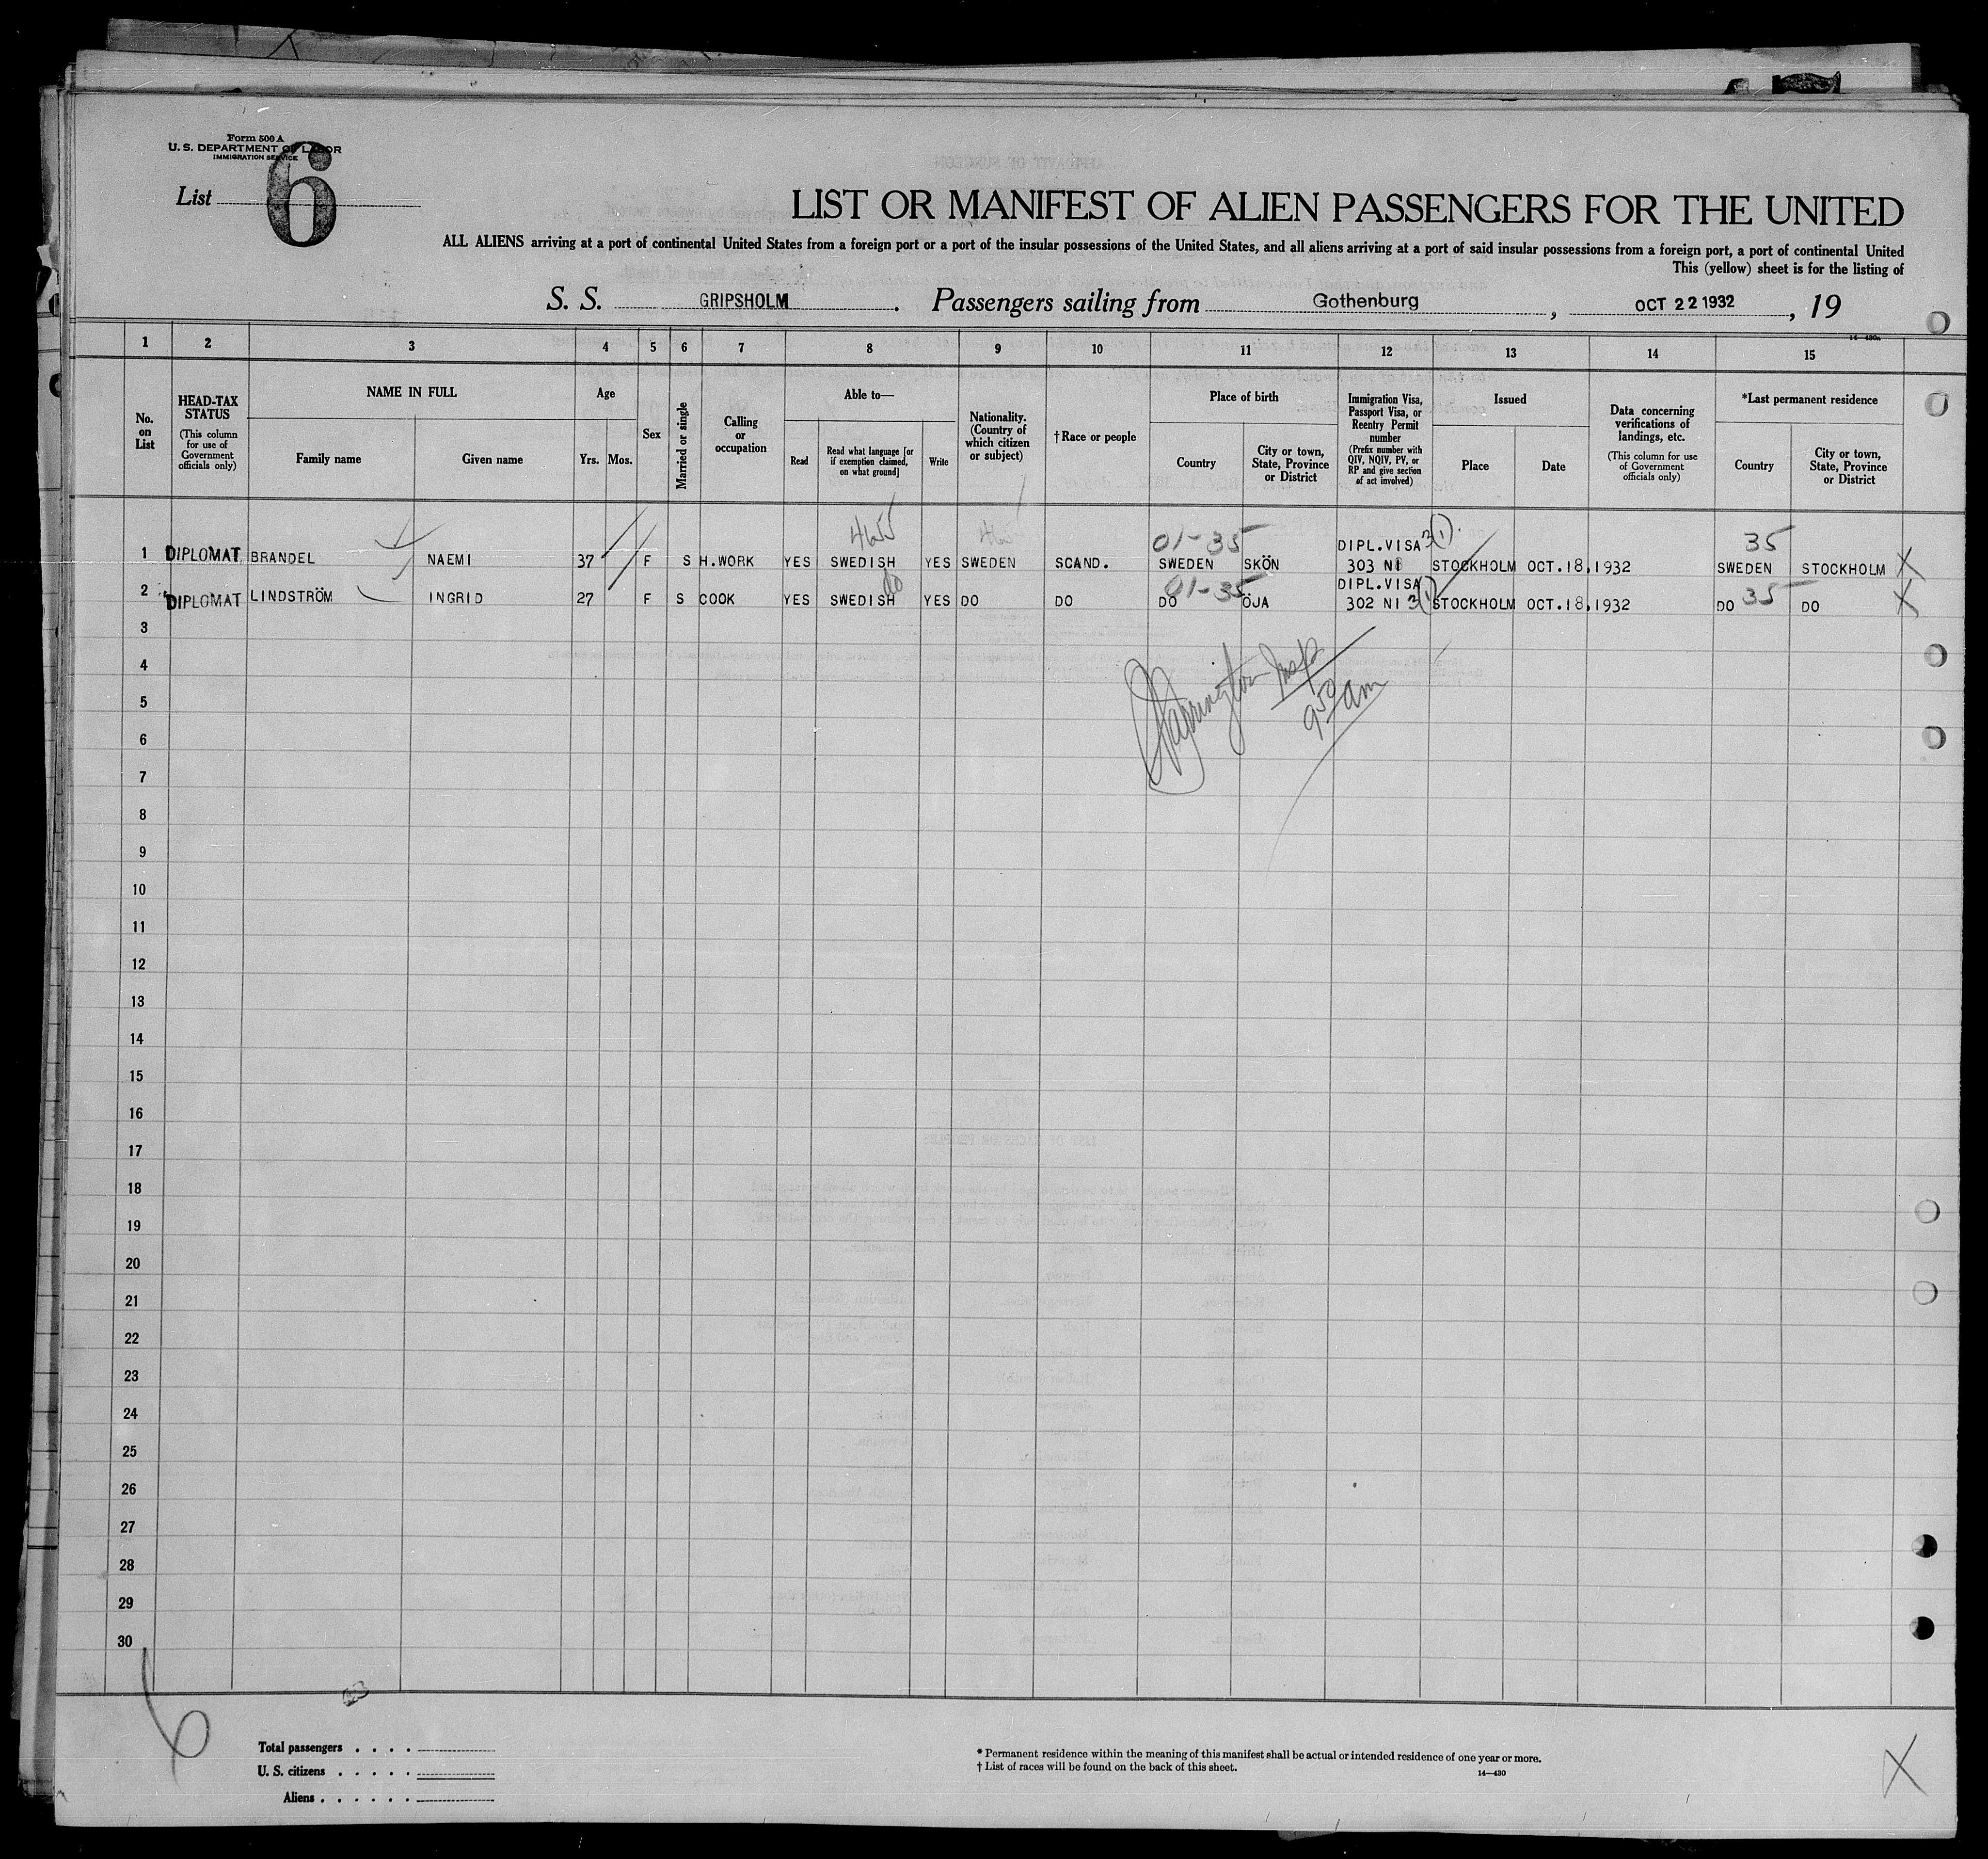 Form 500 A
U. S. DEPARTMENT OF LABOR
IMMIGRATION SERVICE
List 6
LIST OR MANIFEST OF ALIEN PASSENGERS FOR THE UNITED
ALL ALIENS arriving at a port of continental United States from a foreign port or a port of the insular possessions of the United States, and all aliens arriving at a port of said insular possessions from a foreign port, a port of continental United
This (yellow) sheet is for the listing of
S. S. GRIPSHOLM. Passengers sailing from Gothenburg, OCT 22 1932, 19
14—430a
1 2 3 4 5 6 7 8 9 10 11 12 13 14 15
No. on List
HEAD-TAX STATUS
(This column for use of Government officials only)
NAME IN FULL
Family name
Given name
Age
Yrs. Mos.
Sex
Married or single
Calling or occupation
Able to—
Read
Read what language [or if exemption claimed, on what ground]
Write
Nationality. (Country of which citizen or subject)
†Race or people
Place of birth
Country
City or town, State, Province or District
Immigration Visa, Passport Visa, or Reentry Permit number
(Prefix number with QIV, NQIV, PV, or RP and give section of act involved)
Issued
Place
Date
Data concerning verifications of landings, etc.
(This column for use of Government officials only)
*Last permanent residence
Country
City or town, State, Province or District
465 01-35 DIPL.VISA 3(1) 35
1 DIPLOMAT BRANDEL NAEMI 37 F S H.WORK YES SWEDISH YES SWEDEN SCAND. SWEDEN SKÖN 303 NI STOCKHOLM OCT.18,1932 SWEDEN STOCKHOLM X
do 01-35 DIPL.VISA 35
2 DIPLOMAT LINDSTRÖM INGRID 27 F S COOK YES SWEDISH YES DO DO DO ÖJA 302 NI 3(1) STOCKHOLM OCT.18,1932 DO DO X
3
4
Insp
5
950 am
6
7
8
9
10
11
12
13
14
15
16
17
18
19
20
21
22
23
24
25
26
27
28
29
30
6
Total passengers . . . .
U. S. citizens . . . . .
Aliens . . . . . .
* Permanent residence within the meaning of this manifest shall be actual or intended residence of one year or more.
† List of races will be found on the back of this sheet.
14—430
X